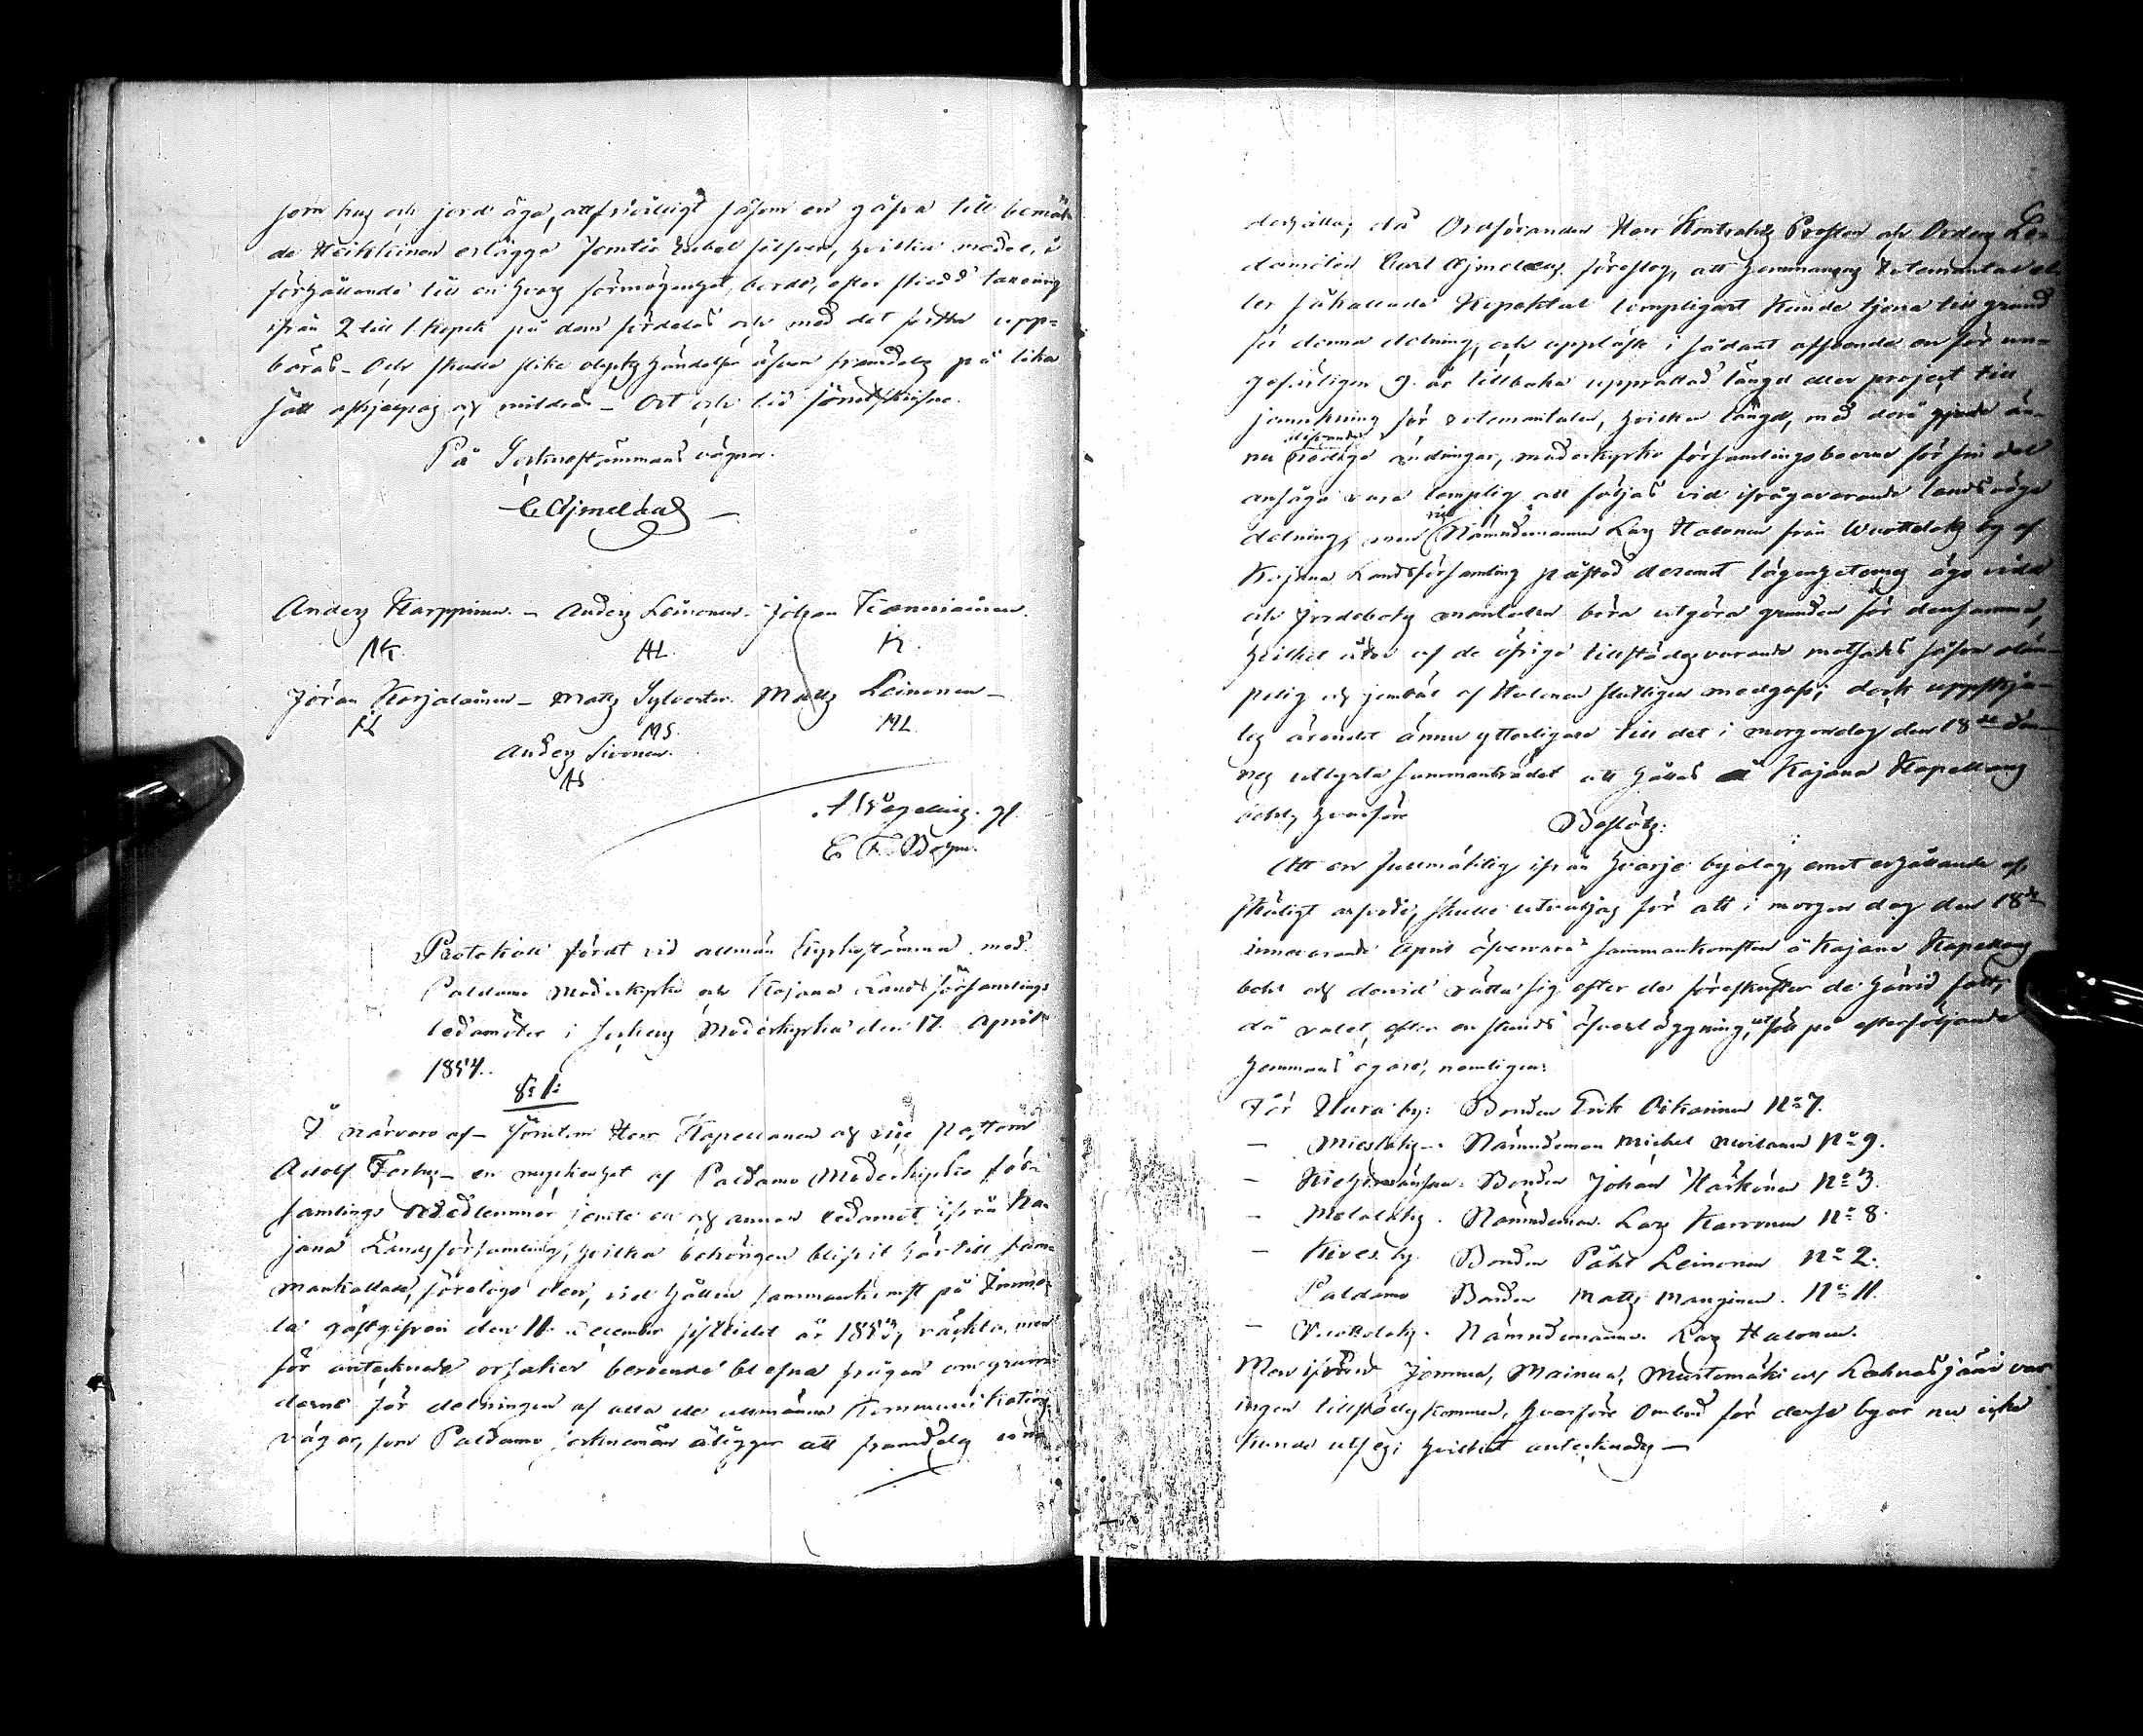 som hus och jord äga, att frivilligt såsom en gåfva till bemäl-
de Heikkinen erlägga femtio Rubel silfver, hvilka medel, i
förhållande till en hvars förmögenhet, borde, efter skedd taxering
ifrån 2 till 1 kopek på dem fördelas och med det första upp-
bäras – Och skulle slike olyckshändelser äfven framdeles på lika
sätt afhjelpas och mildras – Ort och tid förutskrifne.
På Sockenstämmans vägnar.
C Ajmelæus
Anders Karppinen. – Anders Leinonen. Johan
AK. AL. K.
Jöran Karjalainen – Matts Sylvester. Matts Leinonen –
MS. ML.
Anders Sivonen.
AS
Protokoll fördt vid allmän Kyrkostämma med
Paldamo Moderkyrko och Kajana Landsförsamlings
ledamöter i Sockens Moderkyrka den 17. April
1854.
§ 1:
I närvaro af – Herr Kapellanen och vice pastorn
Adolf – en myckenhet af Paldamo Moderkyrko för-
samlings medlemmar jemte en och annan ledamot ifrån Ka-
jana Landsförsamling, hvilka behörigen blifvit härtill sam-
mankallade, föredrogs den, vid hållen sammankomst på
la gästgifveri den 11. December sistlidet år 1853, väckta, men
för antecknade orsaker beroende blefna frågan om grun-
derne för delningen af alla de allmänna Kommunikations
vägar, som Paldamo sockenmän åligger att framdeles un-
derhålla; då Ordföranden Herr Kontrakts Prosten och Ordens Le-
damoten Carl Ajmelæus föreslog, att hemmanens Rotemantal el-
ler såkallade Kopaktal lämpligast kunde tjena till grund
för denna delning, och uppläste i sådant afseende en för un-
gefärligen 9. år tillbaka upprättad längd eller project till
jemkning för rotemantalen, hvilken längd, med deri gjorde än-
nu nödige ändringar, moderkyrko församlingsboerne för sin del
ansågo vara lämplig att följas vid ifrågavarande landsvägs
delning, men Nämndemannen Lars Halonen från Wuottolaks by af
Kajana Landsförsamling påstod deremot lägenheternes ägo vidd
och Jordeboks mantalen böra utgöra grunden för densamma,
hvilket åter af de öfrige tillstädesvarande motsades såsom oläm-
pelig och jembäl af Halonen slutligen medgafs; dock uppskju-
tes ärendet ännu ytterligare till det i morgondag den 18de den-
nes utlysta sammanträdet att hållas å Kajana Kapellans
bohl, hvarföre
Beslöts:
Att en fullmäktig ifrån hvarje byalag, emot erhållande af
skäligt arfvode, skulle utväljas för att i morgon dag den 18de
innevarande April öfvervara sammankomsten å Kajana Kapellans
bohl och dervid rätta sig efter de föreskrifter de härvid fått,
då valet, efter en stunds öfverläggning, utföll på efterföljande
hemmans egare, nemligen:
För Uura by: Bonden Erik Oikarinen No 7.
– Mieslaks – Nämndeman Michel No 9.
– Bonden Johan Härkönen No 3.
– Melalaks. Nämndeman Lars Karvonen No 8.
– Kives by. Bonden Påhl Leinonen No 2.
Paldamo Bonden Matts Manginen. No 11.
– Vuottolaks. Nämndemannen Lars Halonen.
Men ifrån Jormua, Mainua, Murtomäki och Lahnasjärvi var
ingen tillstädes kommen, hvarföre Ombud för dessa byar nu icke
kunde utses; hvilket antecknades –